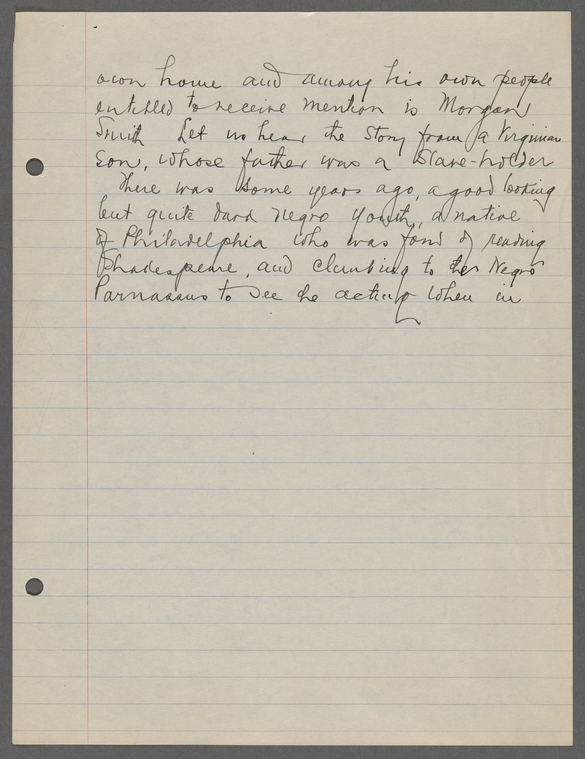 own home and among his own people
entitled to receive mention is Morgan
Smith Let us hear the Story from a Virginian
Son, whose father was a Slave-holder
There was some years ago, a good looking
but quite dark negro youth, a native
of Philadelphia who was fond of reading
Shakespeare, and climbing to the Negro
Parnassus to see the acting when in